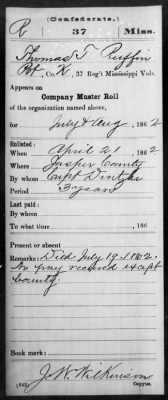 (Confederate.)
R 37 Miss.
Thomas T. Ruffin
Pvt, Co. K, 37 Reg't Mississippi Vols.
Appears on
Company Muster Roll
of the organization named above,
for July & Aug, 1862
Enlisted:
When April 21, 1862
Where Jasper County
By whom Capt
Period 3 years
Last paid:
By whom
To what time , 186
Present or absent
Remarks: Died July 19, 1862.
No pay received except
bounty.
Book mark:
J. W. Wilkinson
(642) Copyist.